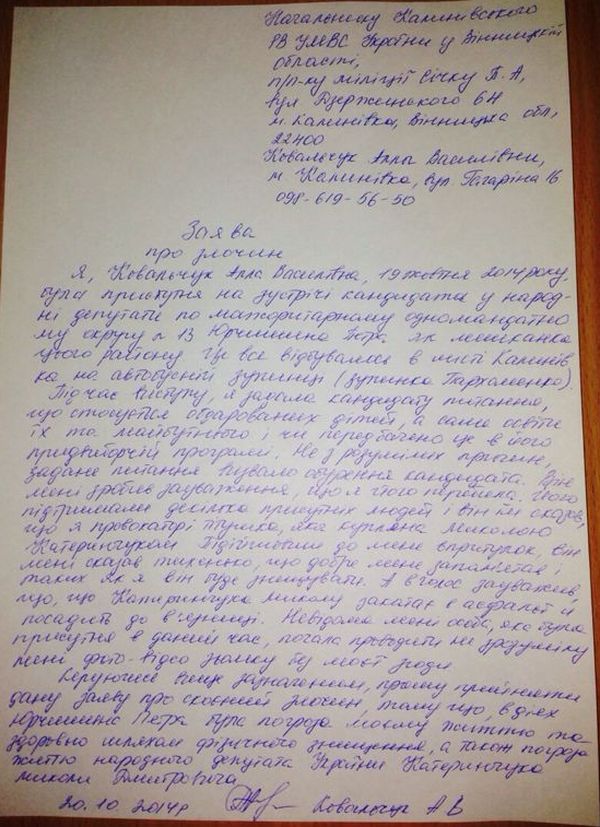 Начальнику Калинівського
РВ УМВС України у Вінницькій
області,
п/п-ку міліції Січку П. А,
вул Дзержинського 64
м. Калинівка, Вінницька обл,
22400
Ковальчук Алли Василівни,
м Калинівка, вул. Гагаріна 16
098-619-56-50
Заява
про злочин
Я, Ковальчук Алла Василівна, 19 жовтня 2014 року,
була присутня на зустрічі кандидата у народ-
ні депутати по мажоритарному одномандатно
му округу № 13 Юрчишина Петра як мешканка
цього району. Це все відбувалося в місті Калинів
ка на автобусній зупинці (зупинка Пархоменко).
Під час виступу, я задала кандидату питання,
що стосується обдарованих дітей, а саме освіти
їх та майбутнього і чи передбачено це в його
предвиборчій програмі. Не з розумілих причин,
задане питання визвало обурення кандидата. Він
мені зробив зауваження, що я його перебила. Його
підтримали декілька присутніх людей і він їм сказав,
що я провокатор і тітушка, яка куплена Миколою
Катеринчуком Підійшовши до мене впритул, він
мені сказав тихенько, що добре мене запам'ятав і
таких як я він буде знищувати. А вголос зауважив,
що, що Катеринчука Миколу закатає в асфальт й
посадить до в'язниці. Невідома мені особа, яка була
присутня в даний час, почала проводити не зрозумілу
мені фото-відео зьомку без моєї згоди.
Керуючись вище зазначеним, прошу прийняти
дану заяву про скоєний злочин, тому що, в діях
Юрчишина Петра була погроза моєму життю та
здоровью шляхом фізичного знищення, а також погроза
життю народного депутата України Катеринчука
Миколи Дмитровича
20.10 2014р Ковальчук А В